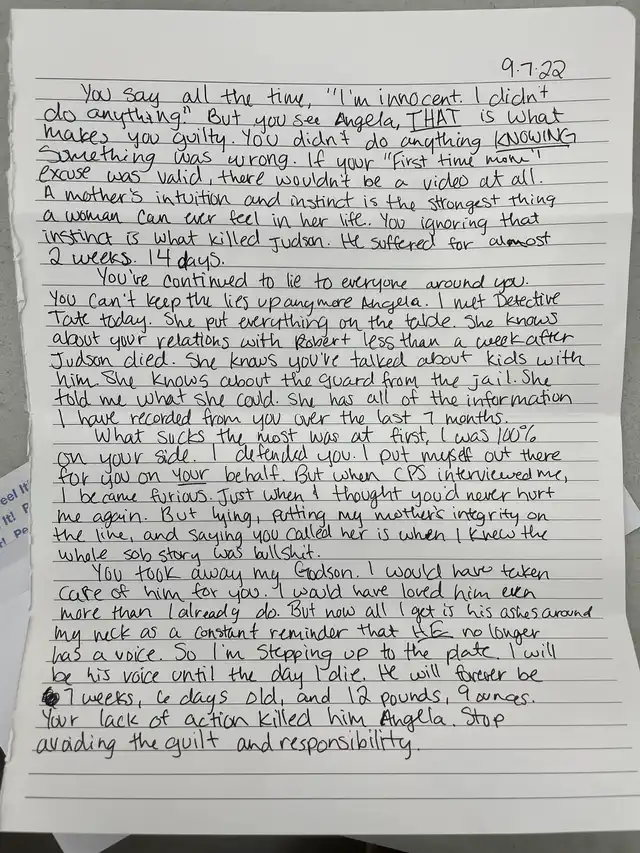 9.7.22
You say all the time, "I'm innocent. I didn't
do anything." But you see Angela, THAT is what
makes you guilty. You didn't do anything KNOWING
something was wrong. If your "First time mom"
excuse was valid, there wouldn't be a video at all.
A mother's intuition and instinct is the strongest thing
a woman can ever feel in her life. You ignoring that
instinct is what killed Judson. He suffered for almost
2 weeks. 14 days.
You've continued to lie to everyone around you.
You can't keep the lies up anymore Angela. I met Detective
Tate today. She put everything on the table. She knows
about your relations with Robert less than a week after
Judson died. She knows you've talked about kids with
him. She knows about the guard from the jail. She
told me what she could. She has all of the information
I have recorded from you over the last 7 months.
What sucks the most was at first, I was 100%
on your side. I defended you. I put myself out there
for you on your behalf. But when CPS interviewed me,
I became furious. Just when I thought you'd never hurt
me again. But lying, putting my mother's integrity on
the line, and saying you called her is when I knew the
whole sob story was bullshit.
You took away my Godson. I would have taken
care of him for you. I would have loved him even
more than I already do. But now all I get is his ashes around
my neck as a constant reminder that HE no longer
has a voice. So I'm stepping up to the plate. I will
be his voice until the day I die. He will forever be
7 weeks, 6 days old, and 12 pounds, 9 ounces.
Your lack of action killed him Angela. Stop
avoiding the guilt and responsibility.